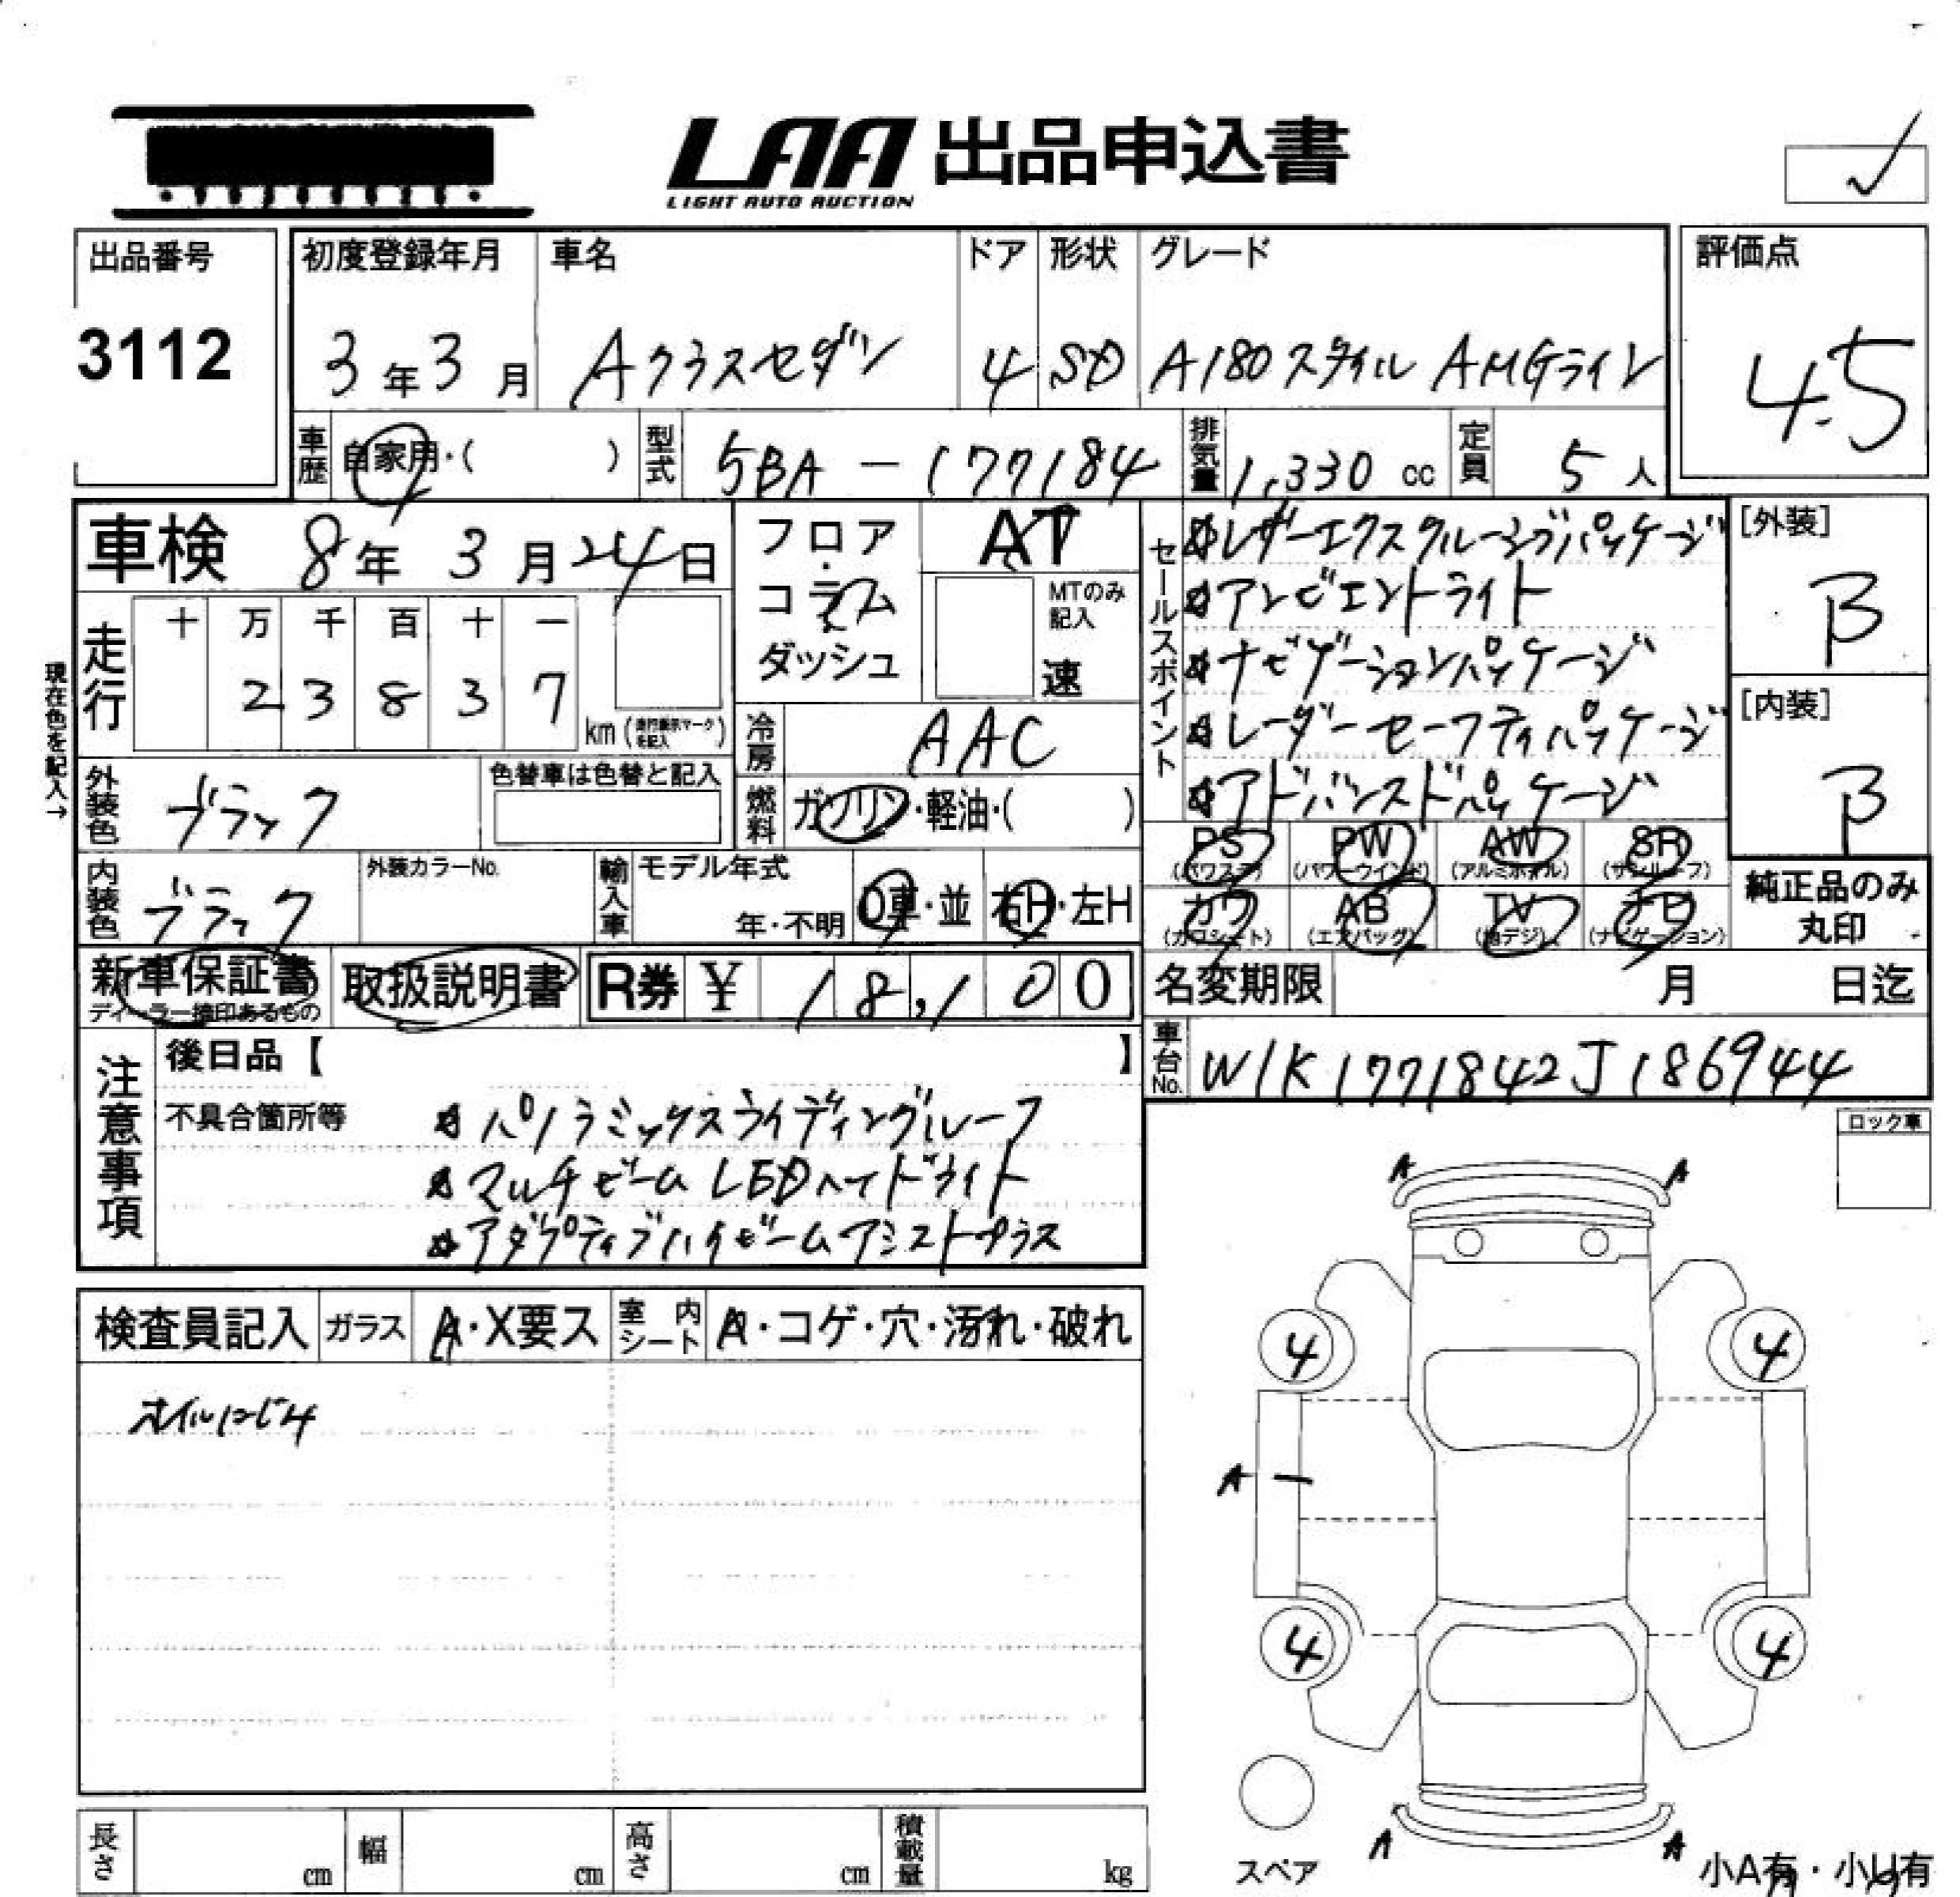 LAA 出品申込書
LIGHT AUTO AUCTION
出品番号
3112
初度登録年月
3年3月
車名
Aクラスセダン
ドア
4
形状
SD
グレード
A180スタイル AMGライン
評価点
4.5
車歴
自家用・( )
型式
5BA-177184
排気量
1,330 cc
定員
5人
車検 8年3月24日
フロア
コラム
ダッシュ
AT
MTのみ記入
速
セールスポイント
☆レザーエクスクルーシブパッケージ
☆アンビエントライト
☆ナビゲーションパッケージ
☆レーダーセーフティパッケージ
☆アドバンスドパッケージ
[外装]
B
[内装]
B
現在色を記入→
走行
十 万 千 百 十 一
2 3 8 3 7
km (走行表示マークを記入)
冷房
AAC
外装色
ブラック
色替車は色替と記入
燃料
ガソリン・軽油・( )
内装色
ブラック
外装カラーNo.
輸入車
モデル年式
年・不明
D車・並
右H・左H
PS (パワステ)
PW (パワーウインド)
AW (アルミホイル)
SR (サンルーフ)
カワ (カワシート)
AB (エアバッグ)
TV (地デジ)
ナビ (ナビゲーション)
純正品のみ
丸印
新車保証書
ディーラー捺印あるもの
取扱説明書
R券 ¥ 18,100
名変期限 月 日迄
車台No.
W1K1771842J186944
注意事項
後日品【 】
不具合箇所等
☆パノラミックスライディングルーフ
☆マルチビームLEDヘッドライト
☆アダプティブハイビームアシストプラス
ロック車
検査員記入
ガラス
A・X要ス
室内シート
A・コゲ・穴・汚れ・破れ
オイルにじみ
A A
4 4
A
4 4
A A
スペア
小A有・小U有
長さ cm
幅 cm
高さ cm
積載量 kg